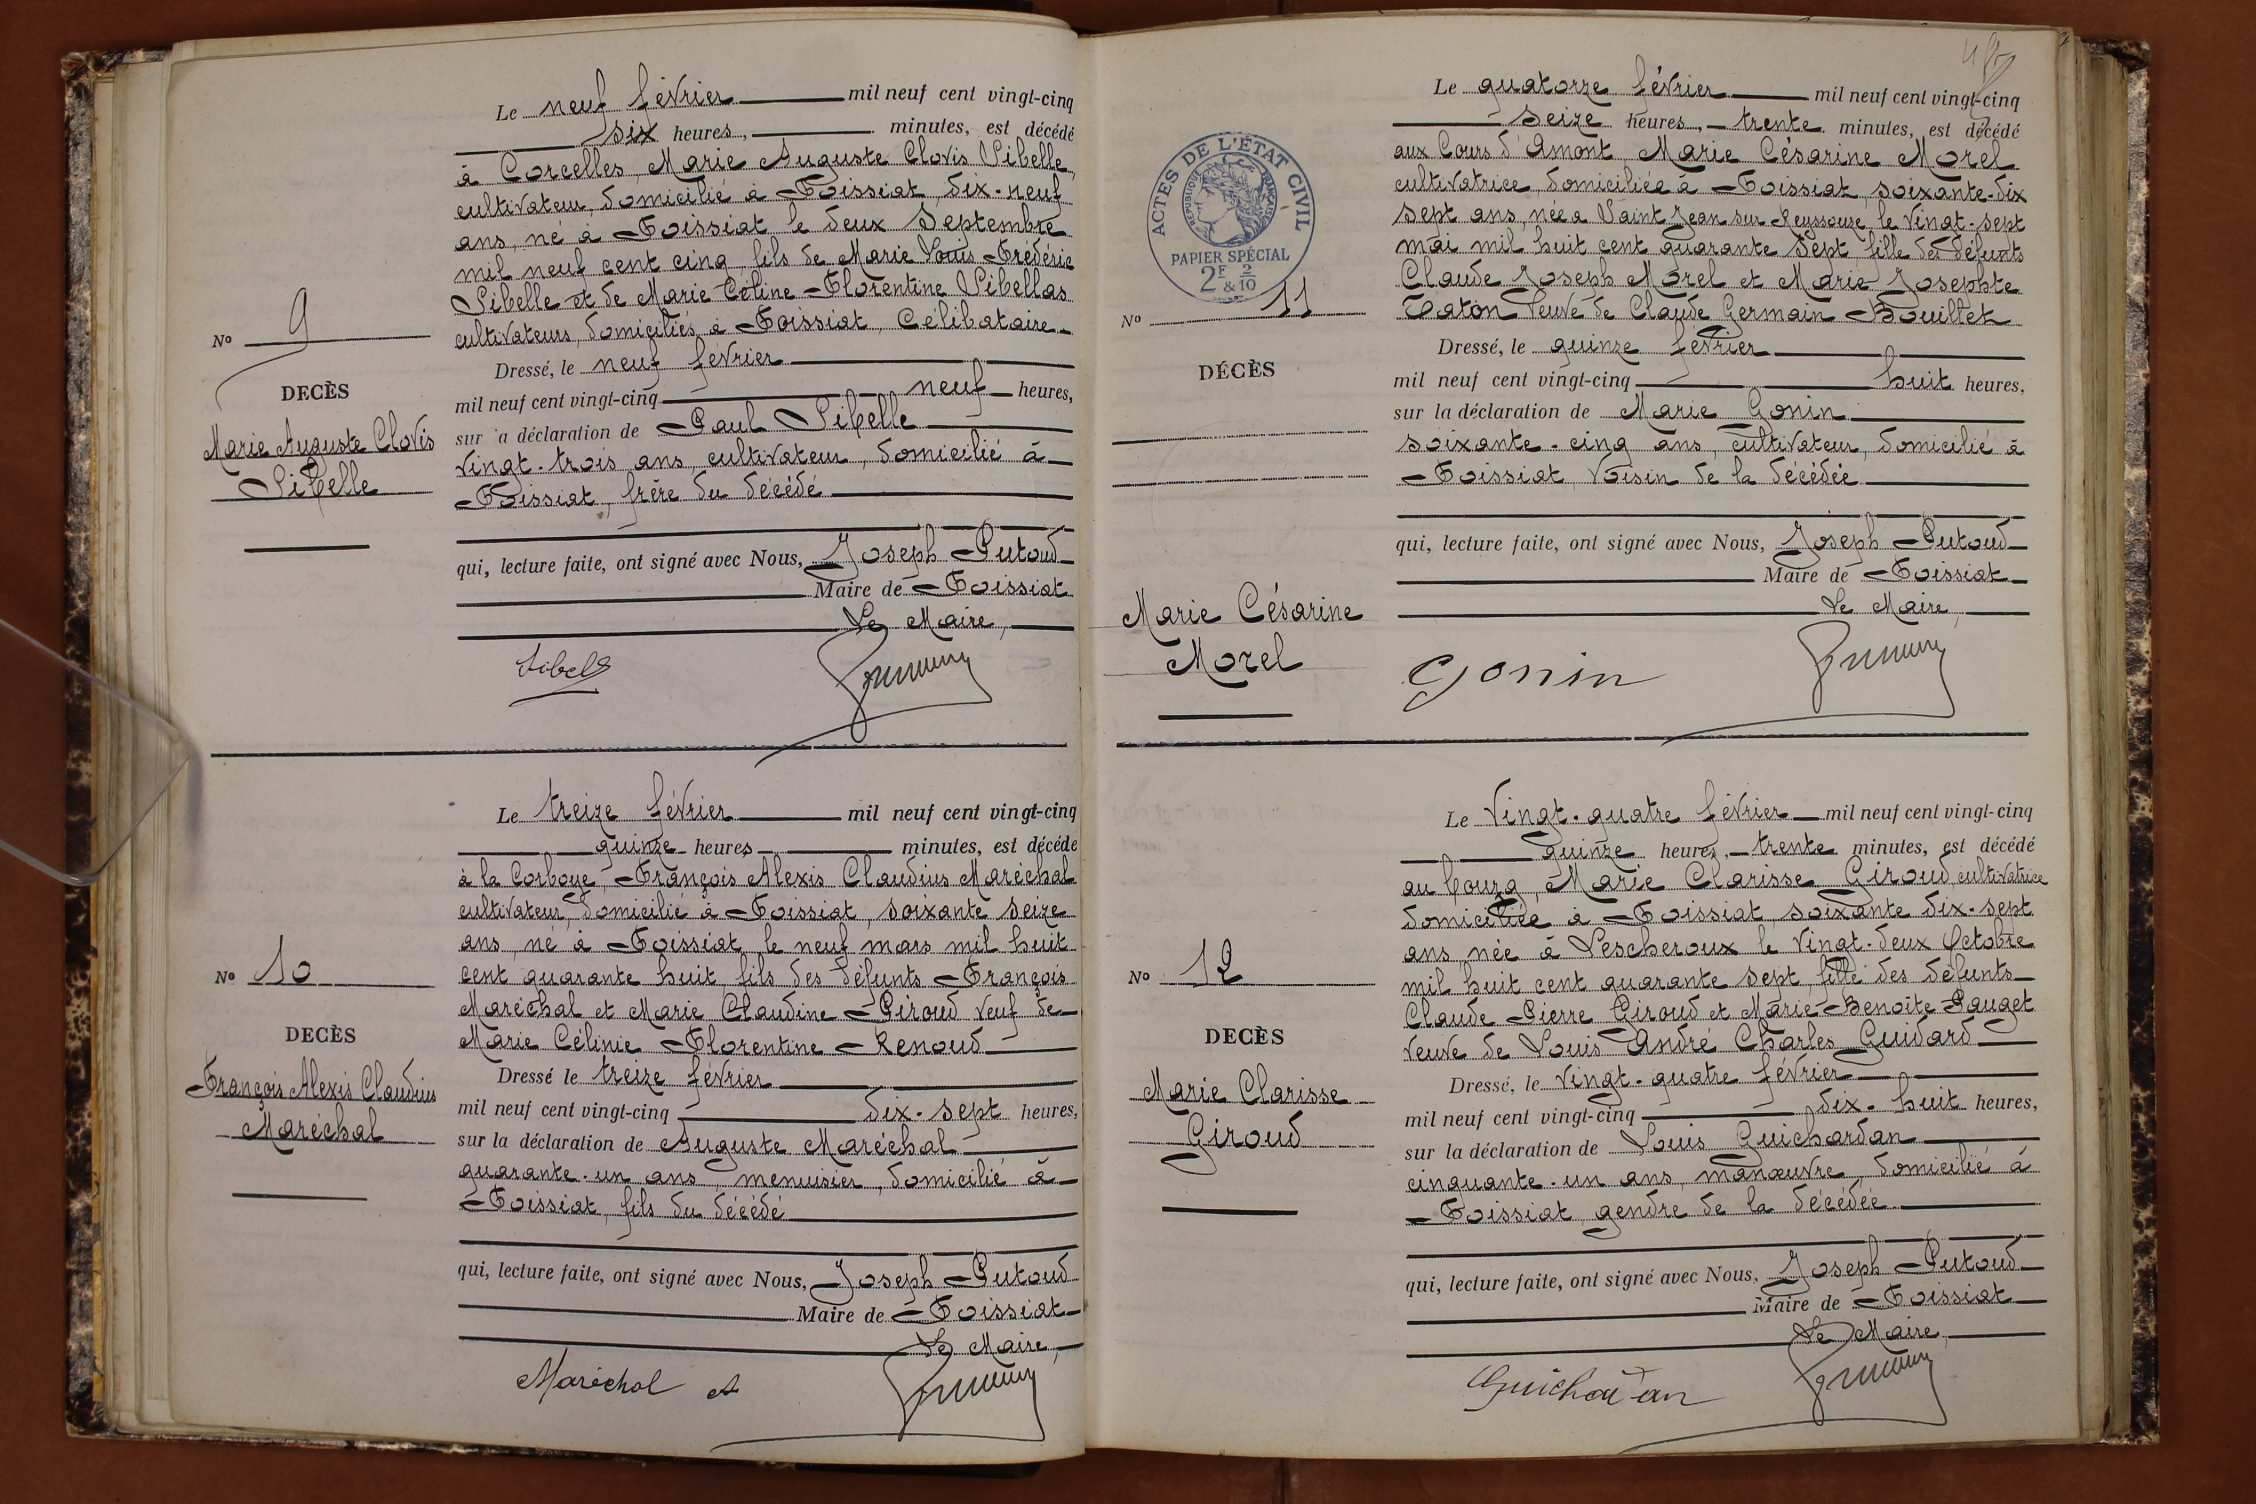 Le neuf février mil neuf cent vingt-cinq
six heures, minutes, est décédé
à Corcelles, Marie Auguste Clovis Sibelle,
cultivateur, domicilié à Foissiat, dix-neuf
ans, né à Foissiat le deux Septembre
mil neuf cent cinq, fils de Marie Louis Frédéric
Sibelle et de Marie Céline Florentine Sibellas
cultivateurs, domiciliés à Foissiat, Célibataire
No 9
Dressé, le neuf février
DECÈS
mil neuf cent vingt-cinq neuf heures,
Marie Auguste Clovis
Sibelle
sur a déclaration de Paul Sibelle
vingt-trois ans, cultivateur, domicilié à
Foissiat, frère du décédé
qui, lecture faite, ont signé avec Nous, Joseph Putoud
Maire de Foissiat
Le Maire,
Sibelle
Le treize février mil neuf cent vingt-cinq
quinze heures minutes, est décédé
à la Corboye, François Alexis Claudius Maréchal
cultivateur, domicilié à Foissiat, soixante seize
ans, né à Foissiat, le neuf mars mil huit
cent quarante huit, fils des défunts François
Maréchal et Marie Claudine Piroud Veuf de
Marie Célinie Florentine Renoud
No 10
DECÈS
François Alexis Claudius
Maréchal
Dressé le treize février
mil neuf cent vingt-cinq dix-sept heures,
sur la déclaration de Auguste Maréchal
quarante-un ans, menuisier, domicilié à
Foissiat, fils du décédé
qui, lecture faite, ont signé avec Nous, Joseph Putoud
Maire de Foissiat
Le Maire,
Maréchal A
Le quatorze février mil neuf cent vingt-cinq
seize heures, trente minutes, est décédé
aux Cours d'Amont, Marie Césarine Morel
cultivatrice, domiciliée à Foissiat, soixante-dix
sept ans, née a Saint Jean sur Reyssouze, le vingt-sept
mai mil huit cent quarante sept, fille de défunts
Claude Joseph Morel et Marie Josephte
Caton Veuve de Claude Germain Bouillet
ACTES DE L'ÉTAT CIVIL
RÉPUBLIQUE FRANÇAISE
PAPIER SPÉCIAL
2F & 2/10
No 11
DÉCÈS
Marie Césarine
Morel
Dressé, le quinze février
mil neuf cent vingt-cinq huit heures,
sur la déclaration de Marie Gonin
soixante-cinq ans, cultivateur, domicilié à
Foissiat, voisin de la décédée
qui, lecture faite, ont signé avec Nous, Joseph Putoud
Maire de Foissiat
Le Maire,
Gonin
Le Vingt-quatre février mil neuf cent vingt-cinq
quinze heures, trente minutes, est décédé
au bourg, Marie Clarisse Giroud, cultivatrice
domiciliée à Foissiat, soixante dix-sept
ans, née à Lescheroux le vingt-deux Octobre
mil huit cent quarante sept, fille des défunts
Claude Pierre Giroud et Marie Benoîte Pauget
veuve de Louis André Charles Guidard
No 12
DECÈS
Marie Clarisse
Giroud
Dressé, le vingt-quatre février
mil neuf cent vingt-cinq dix-huit heures,
sur la déclaration de Louis Guichardan
cinquante-un ans, manœuvre, domicilié à
Foissiat, gendre de la décédée
qui, lecture faite, ont signé avec Nous. Joseph Putoud
Maire de Foissiat
Le Maire,
Guichardan